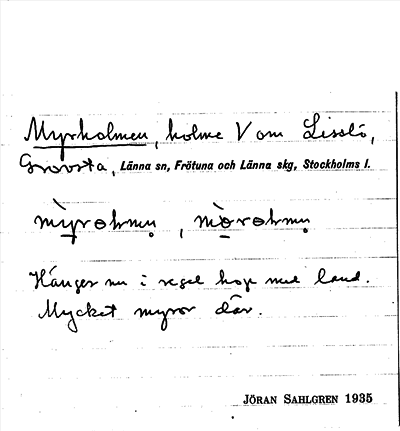 Myrholmen, holme V om Lisslö,
Grovsta, Länna sn, Frötuna och Länna skg, Stockholms l.
Hänger nu i regel hop med land.
Mycket myror där.
JÖRAN SAHLGREN 1935